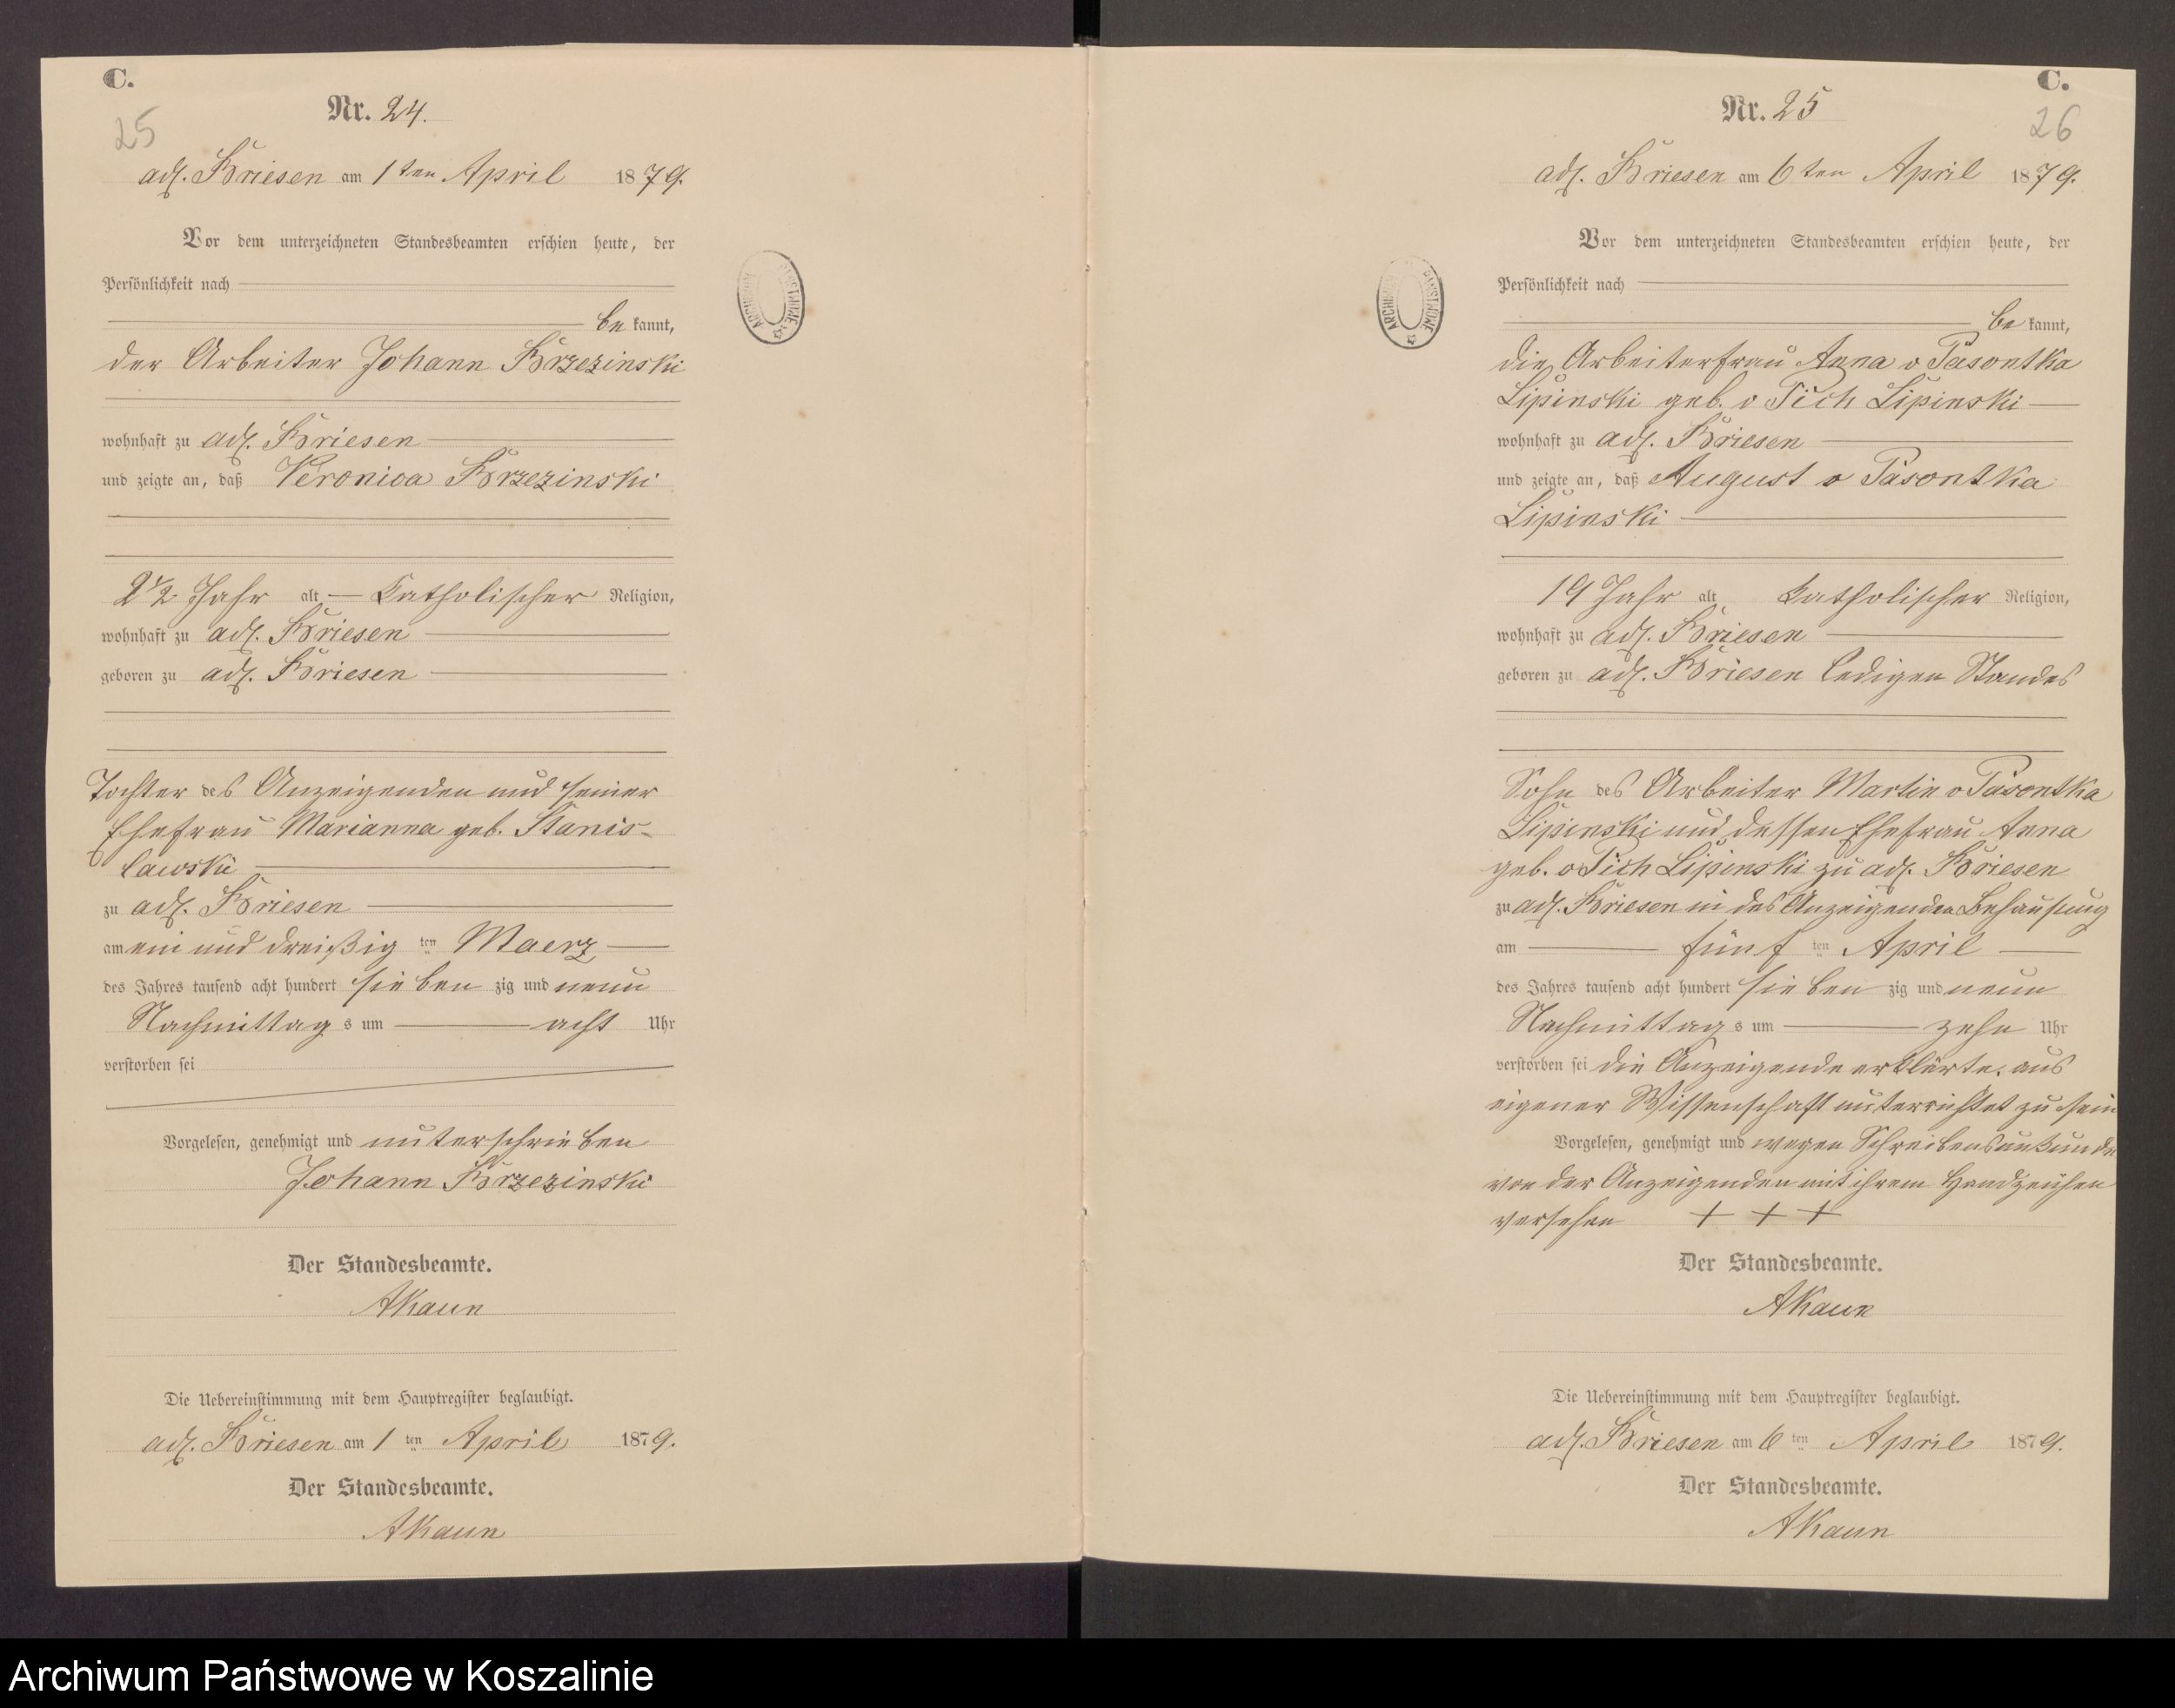 C.
25
Nr. 24.
adl. Briesen am 1ten April 1879.
Vor dem unterzeichneten Standesbeamten erschien heute, der
Persönlichkeit nach
be kannt,
der Arbeiter Johann Brzezinski
wohnhaft zu adl. Briesen
und zeigte an, daß Veronica Brzezinski
2 1/2 Jahr alt Katholischer Religion,
wohnhaft zu adl. Briesen
geboren zu adl. Briesen
Tochter des Anzeigenden und seiner
Ehefrau Marianna geb. Stanis-
lawski
zu adl. Briesen
am ein und dreißig ten Maerz
des Jahres tausend acht hundert sieben zig und neun
Nachmittag s um acht Uhr
verstorben sei
Vorgelesen, genehmigt und unterschrieben
Johann Brzezinski
Der Standesbeamte.
AKaun
Die Uebereinstimmung mit dem Hauptregister beglaubigt.
adl. Briesen am 1 ten April 1879.
Der Standesbeamte.
AKaun
ARCHIWUM PAŃSTWOWE
C.
26
Nr. 25
adl. Briesen am 6ten April 1879.
Vor dem unterzeichneten Standesbeamten erschien heute, der
Persönlichkeit nach
be kannt,
die Arbeiterfrau Anna v Pasontka
Lipinski geb. v Pich Lipinski
wohnhaft zu adl. Briesen
und zeigte an, daß August v Pasontka
Lipinski
19 Jahr alt Katholischer Religion,
wohnhaft zu adl. Briesen
geboren zu adl. Briesen ledigen Standes
Sohn des Arbeiter Martin v Pasontka
Lipinski und dessen Ehefrau Anna
geb. v Pich Lipinski zu adl. Briesen
zu adl. Briesen in des Anzeigenden Behausung
am fünf ten April
des Jahres tausend acht hundert sieben zig und neun
Nachmittag s um zehn Uhr
verstorben sei die Anzeigende erklärte, aus
eigener Wissenschaft unterrichtet zu sein
Vorgelesen, genehmigt und wegen Schreibensunkunde
von der Anzeigenden mit ihrem Handzeichen
versehen + + +
Der Standesbeamte.
AKaun
Die Uebereinstimmung mit dem Hauptregister beglaubigt.
adl. Briesen am 6 ten April 1879.
Der Standesbeamte.
AKaun
ARCHIWUM PAŃSTWOWE
Archiwum Państwowe w Koszalinie